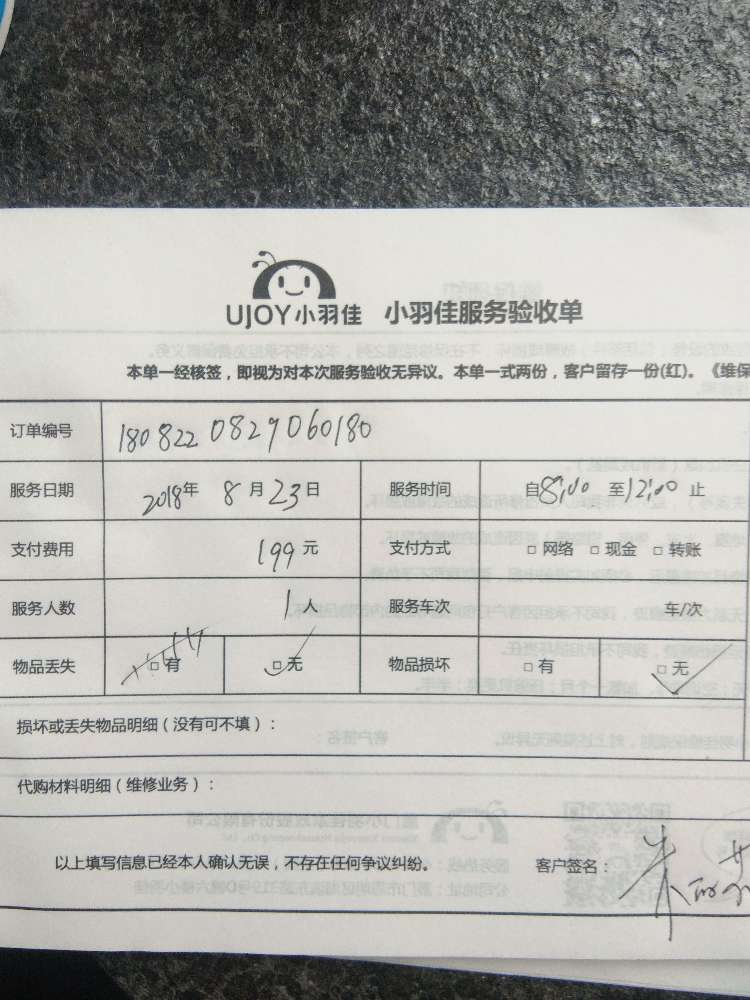 UJOY小羽佳 小羽佳服务验收单
本单一经核签，即视为对本次服务验收无异议。本单一式两份，客户留存一份(红)。《维保
订单编号 180822 0829060180
服务日期 2018年 8月23日 服务时间 自8:00 至12:00 止
支付费用 199元 支付方式 □网络 □现金 □转账
服务人数 1人 服务车次 车/次
物品丢失 □有 □无 物品损坏 □有 □无
损坏或丢失物品明细（没有可不填）：
代购材料明细（维修业务）：
以上填写信息已经本人确认无误，不存在任何争议纠纷。 客户签名：